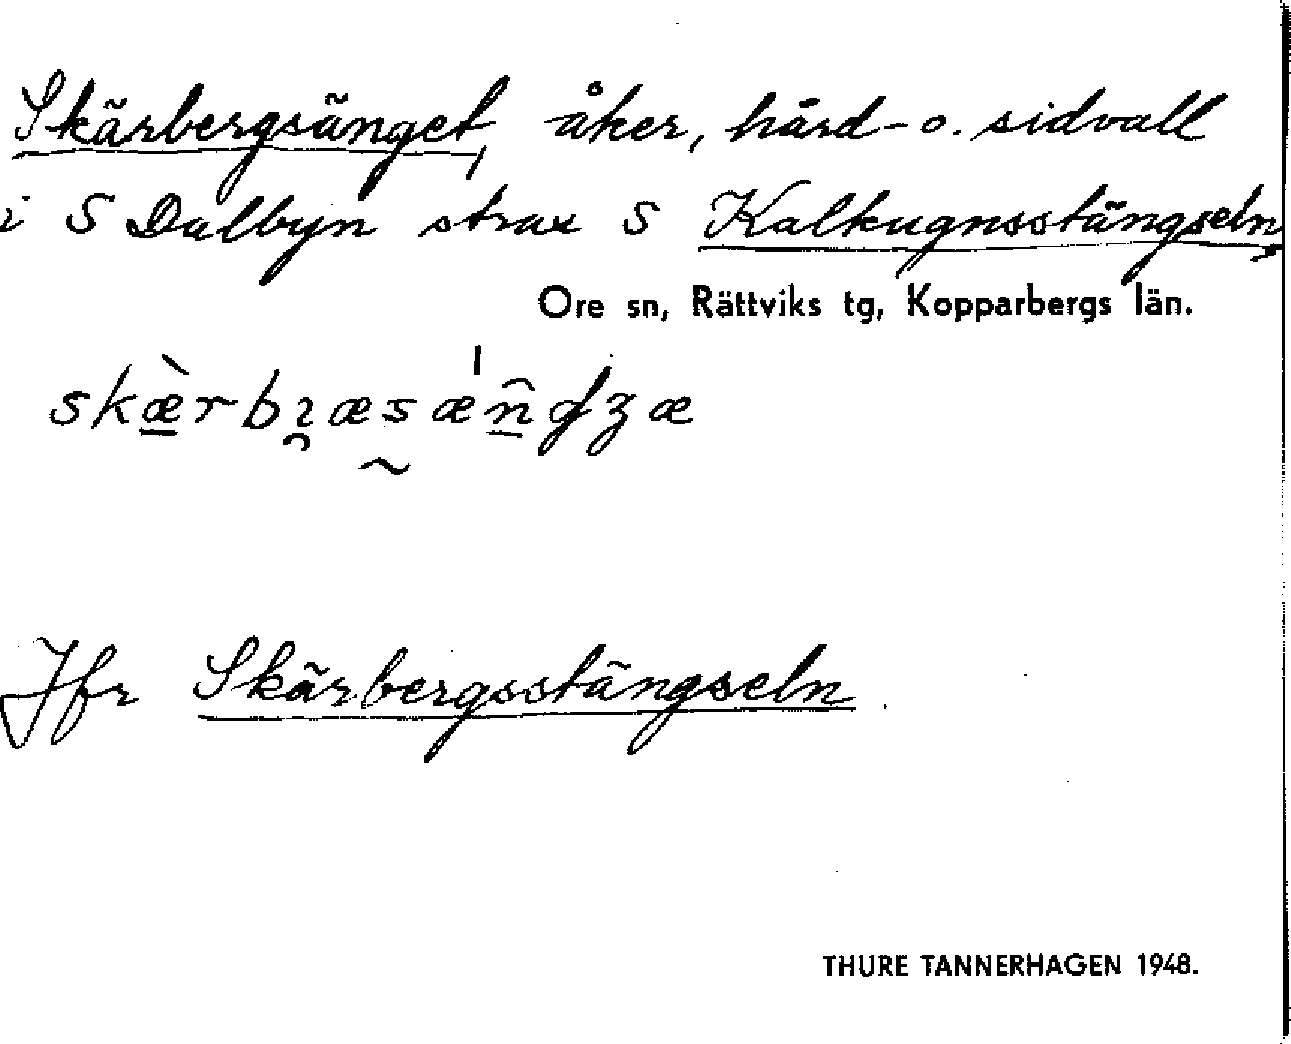 Skärbergsänget, åker, hård- o. sidvall
i S Dalbyn strax S Kalkugnsstängseln,
Ore sn, Rättviks tg, Kopparbergs län.
Jfr Skärbergsstängseln.
THURE TANNERHAGEN 1948.